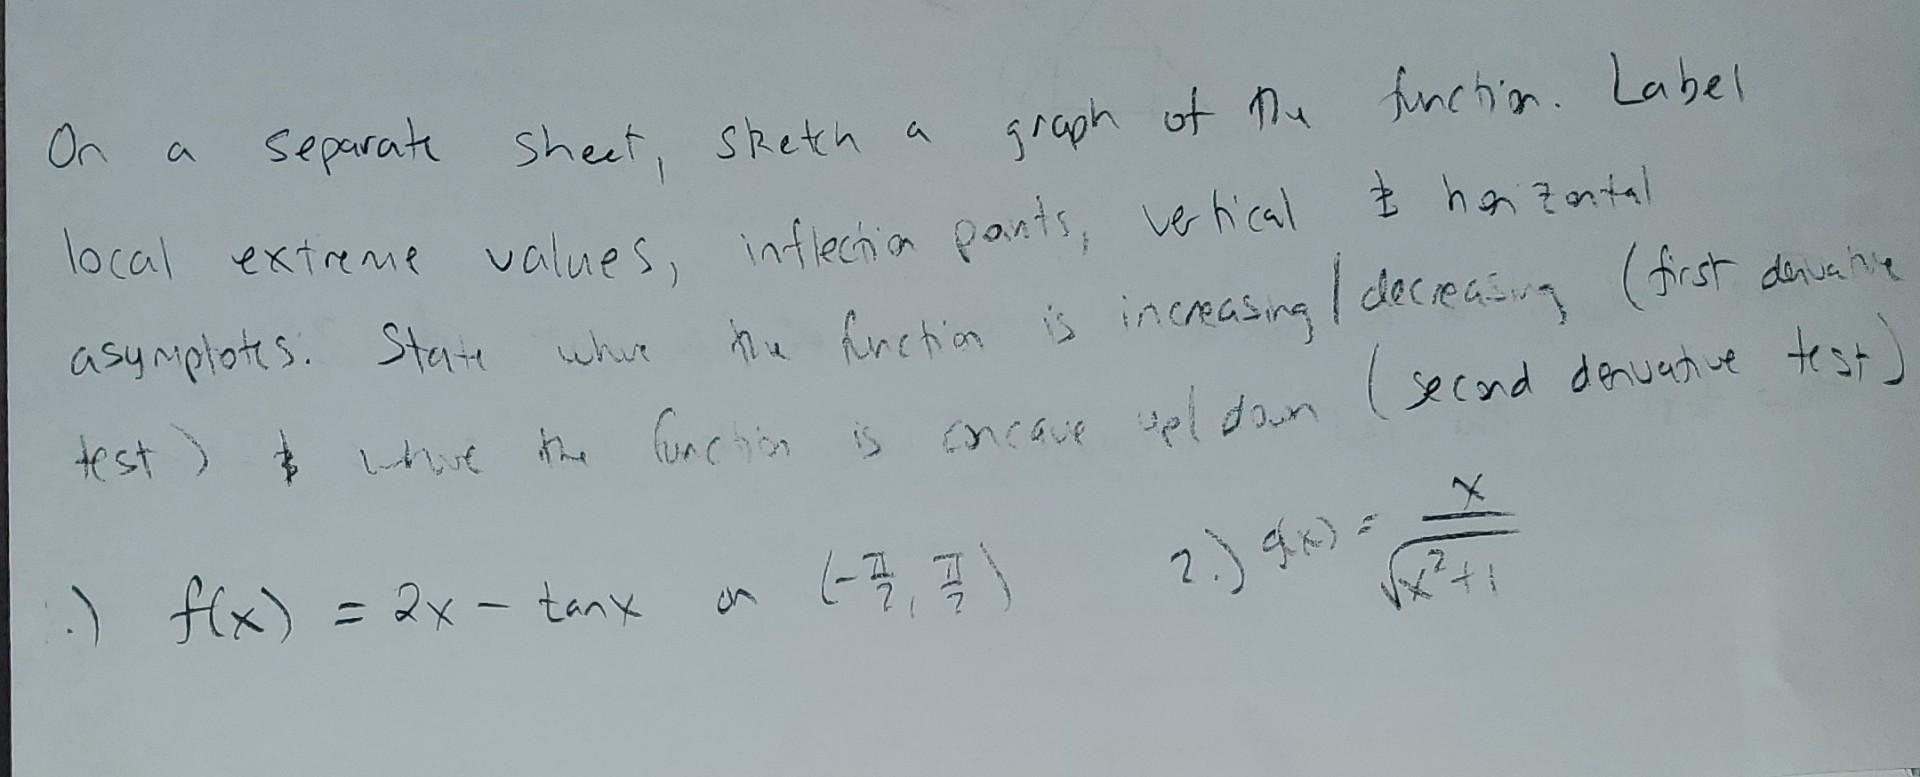 On a separate sheet, sketch a graph of the function. Label
local extreme values, inflection points, vertical & horizontal
asymptotes. State where the function is increasing/decreasing (first derivative
test) & where the function is concave up/down (second derivative test)
.) f(x) = 2x - tanx on (-π/2, π/2) 2.) g(x) = x/√(x²+1)